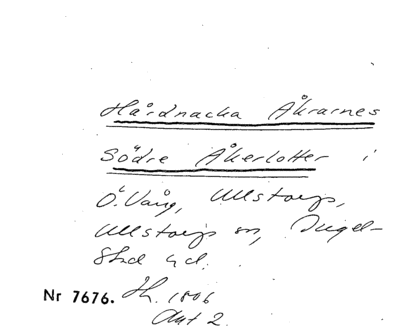 Hårdnacka Åkrarnes
Södre Åkerlotter i
Ö. Vång, Ullstorps,
Ullstorps sn, Ingel-
stad hd.
Nr 7676. Hh. 1806
Akt 2.